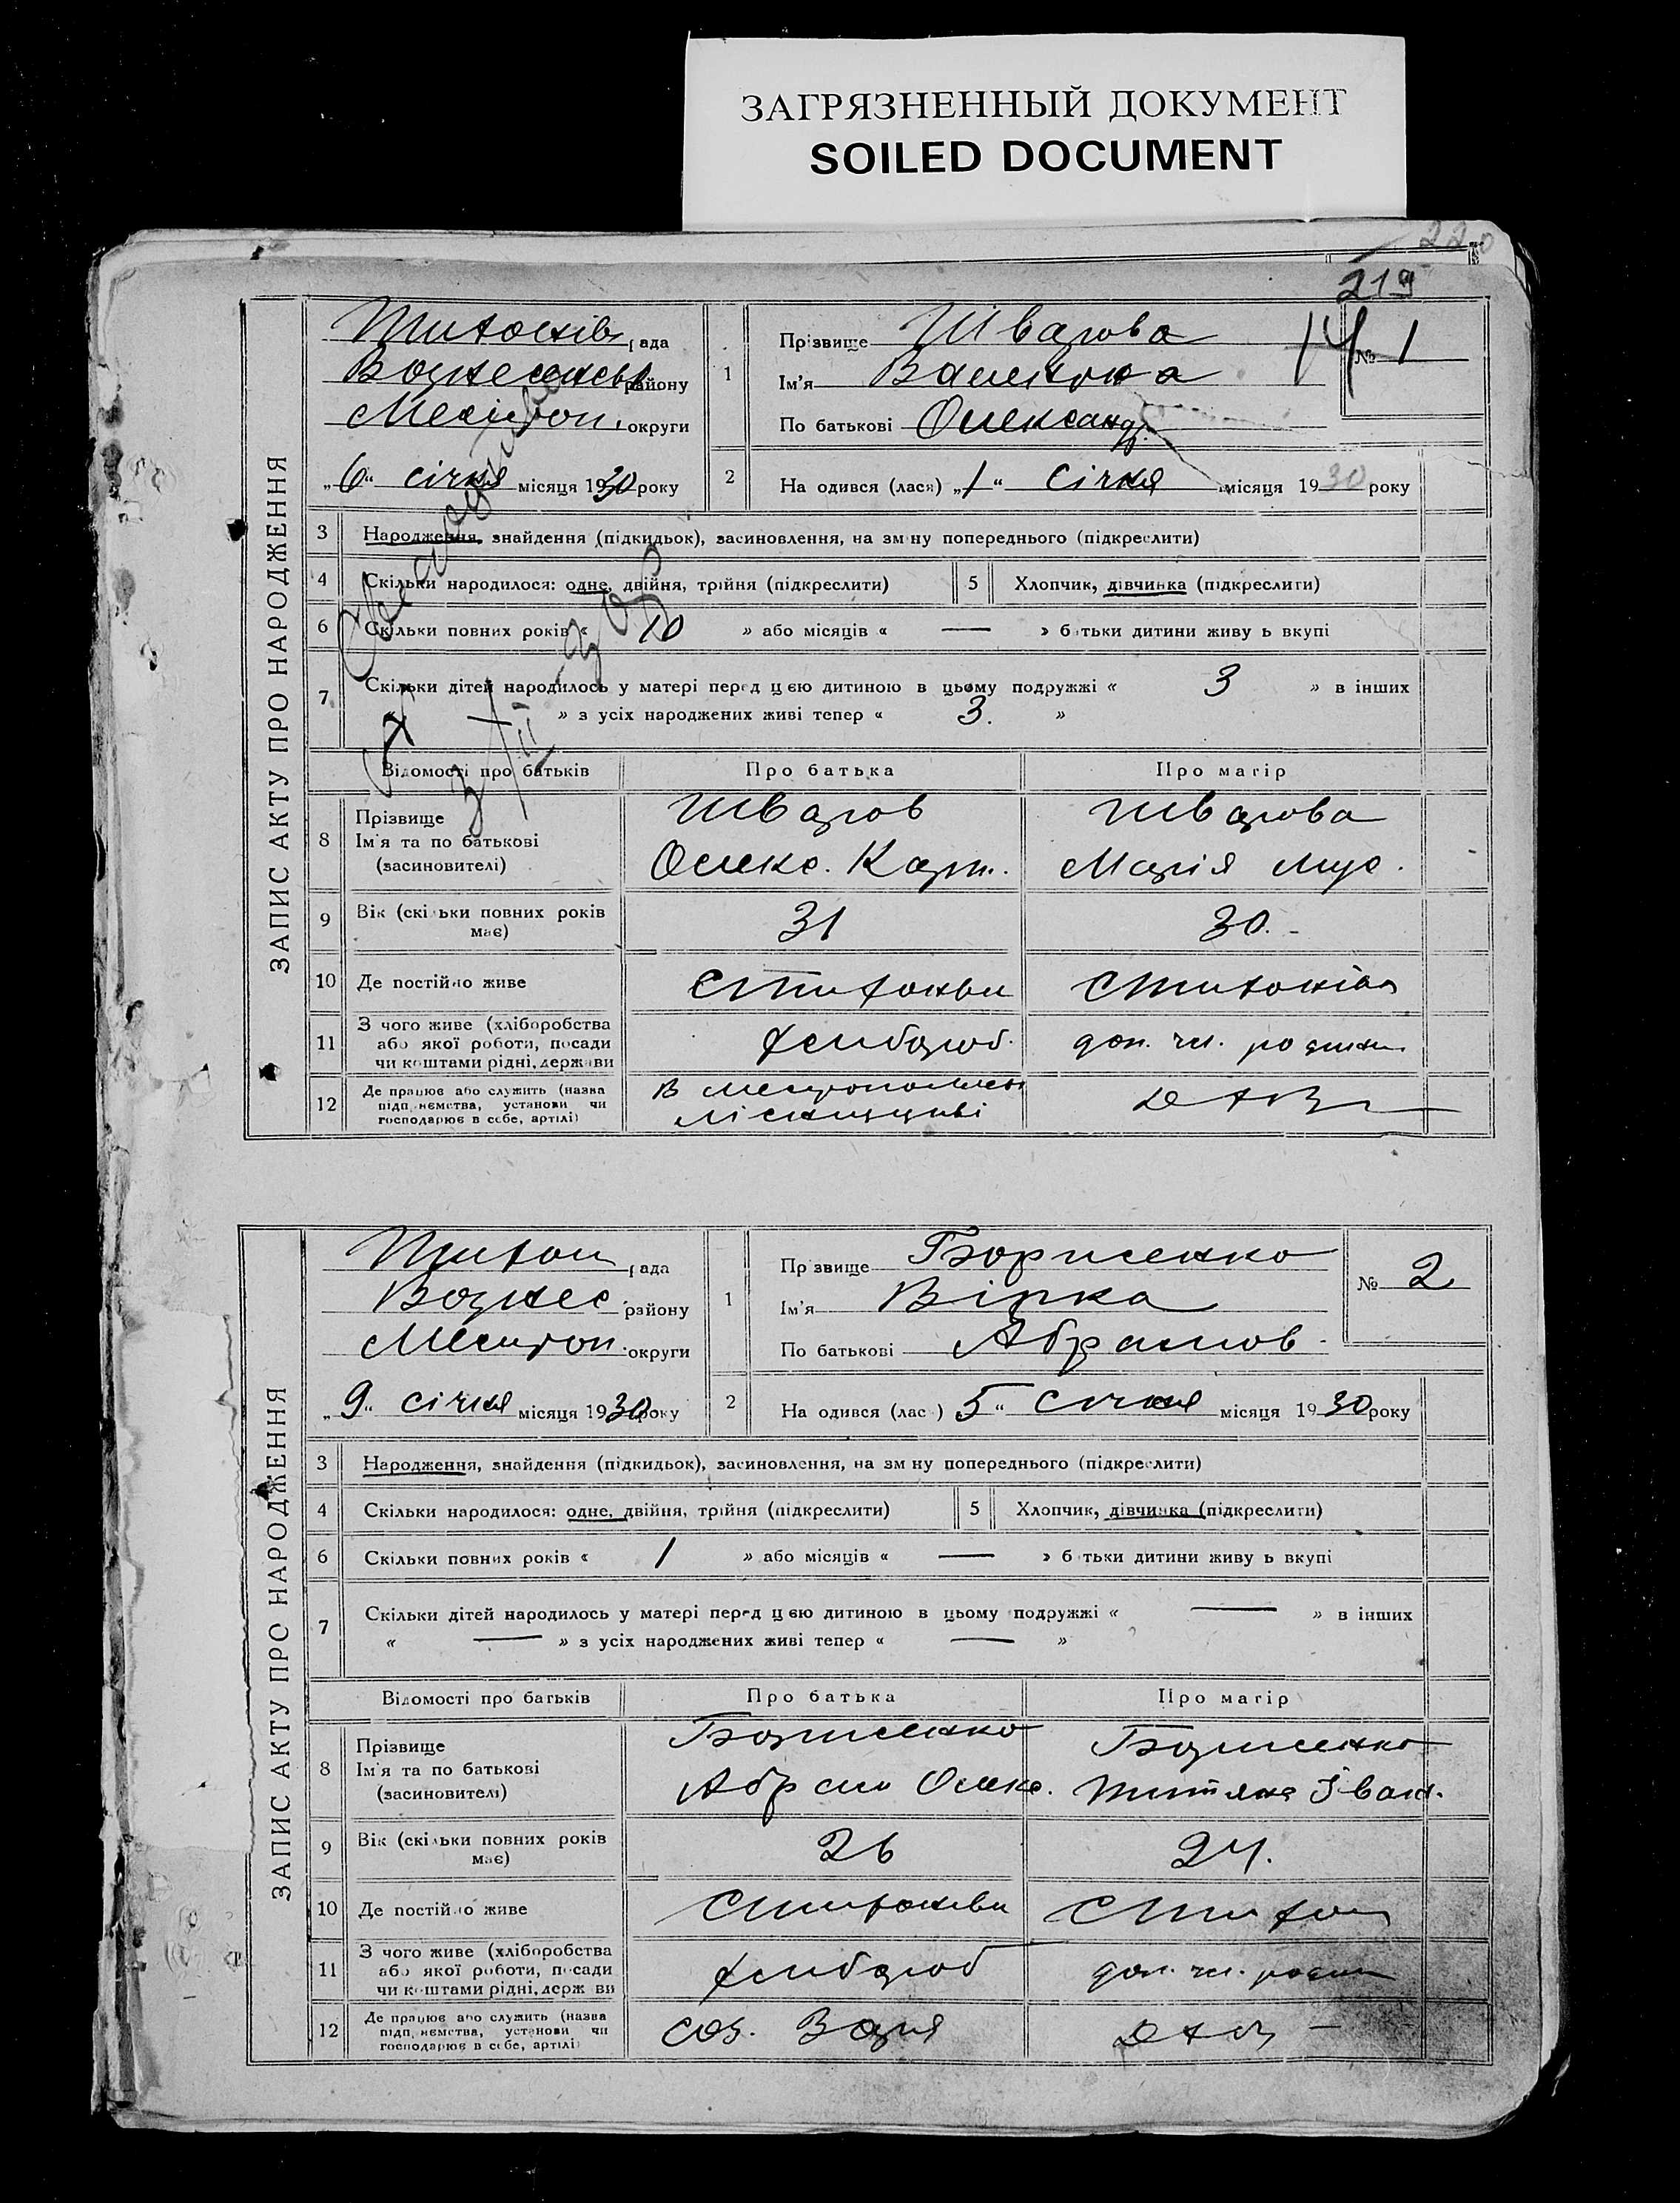 ЗАГРЯЗНЕННЫЙ ДОКУМЕНТ
SOILED DOCUMENT
220
219
ЗАПИС АКТУ ПРО НАРОДЖЕННЯ
рада
району
Меліտոп. округи
„6“ січня місяця 1930 року
1
Прізвище Шварова
Ім'я Валентина
По батькові Олександ.
№ 1
14
2
Народився (лася) „1“ січня місяця 1930 року
3 Народження, знайдення (підкидьок), засиновлення, на зміну попереднього (підкреслити)
4 Скільки народилося: одне, двійня, трійня (підкреслити)
5 Хлопчик, дівчинка (підкреслити)
6 Скільки повних років « 10 » або місяців « — » батьки дитини живуть вкупі
7 Скільки дітей народилось у матері перед цією дитиною в цьому подружжі « 3 » в інших
» з усіх народжених живі тепер « 3. »
Відомості про батьків Про батька Про матір
8 Прізвище
Ім'я та по батькові
(засиновителі)
Шваров
Олекс.
Шварова
Марія
9 Вік (скільки повних років
має)
31
30.
10 Де постійно живе
11 З чого живе (хліборобства
або якої роботи, посади
чи коштами рідні, держави
хлібороб.
доп. чл. родини
12 Де працює або служить (назва
підприємства, установи чи
господарює в себе, артілі)
В
ЗАПИС АКТУ ПРО НАРОДЖЕННЯ
рада
Вознес. району
Мелітоп. округи
„9“ січня місяця 1930 року
1
Прізвище Борисенко
Ім'я Вірка
По батькові Абрамов.
№ 2
2
Народився (лася) „5“ січня місяця 1930 року
3 Народження, знайдення (підкидьок), засиновлення, на зміну попереднього (підкреслити)
4 Скільки народилося: одне, двійня, трійня (підкреслити)
5 Хлопчик, дівчинка (підкреслити)
6 Скільки повних років « 1 » або місяців « — » батьки дитини живуть вкупі
7 Скільки дітей народилось у матері перед цією дитиною в цьому подружжі « — » в інших
« — » з усіх народжених живі тепер « — »
Відомості про батьків Про батька Про матір
8 Прізвище
Ім'я та по батькові
(засиновителі)
Борисенко
Абрам Олекс.
Борисенко
Іван.
9 Вік (скільки повних років
має)
26
24.
10 Де постійно живе
11 З чого живе (хліборобства
або якої роботи, посади
чи коштами рідні, держави
хлібороб
доп. чл. родини
12 Де працює або служить (назва
підприємства, установи чи
господарює в себе, артілі)
соз. Зоря